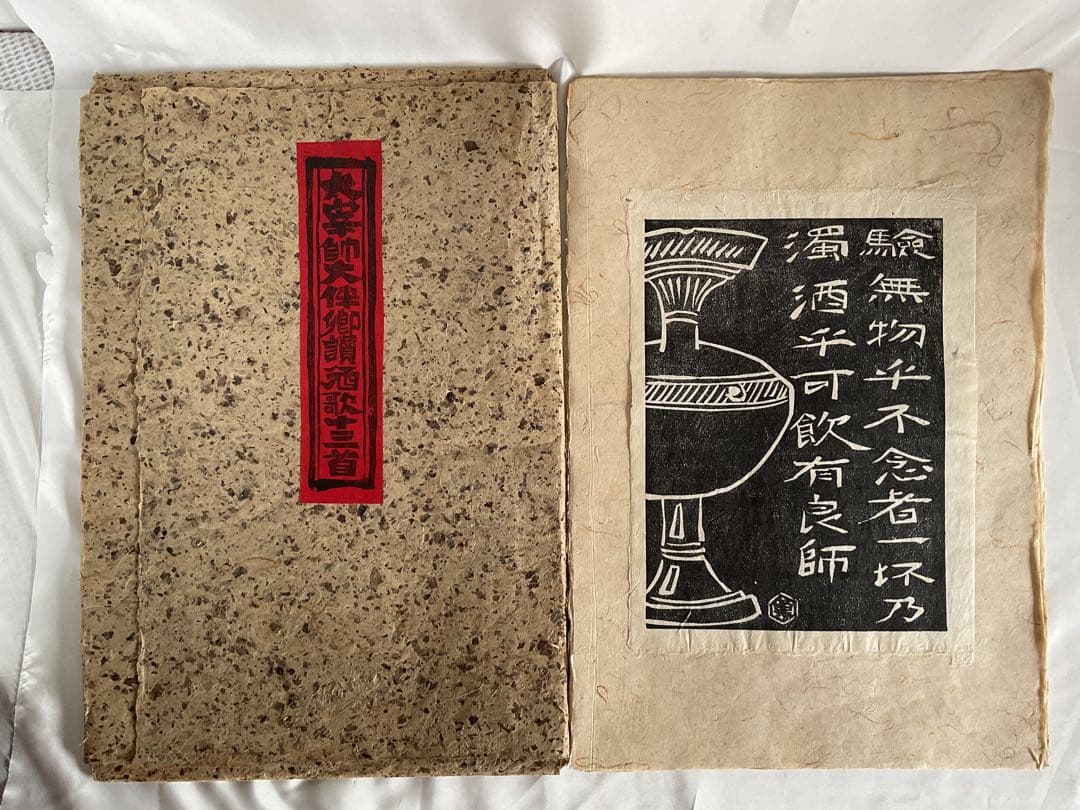 太宰帥大伴卿讃酒歌十三首
驗無物乎不念者一坏乃
濁酒乎可飲有良師